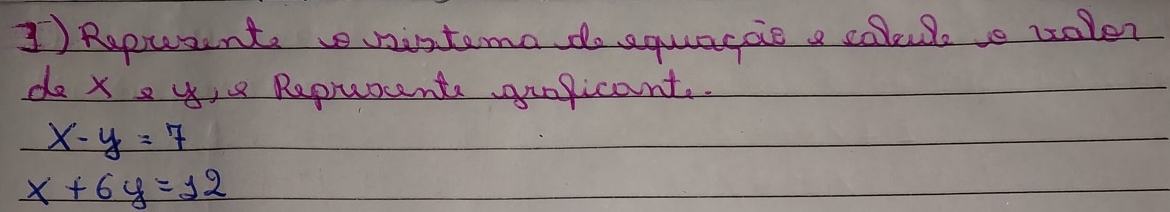 1) Represente o sistema de equação e calcule o valor
de x e y, e Represente graficante.
x - y = 7
x + 6y = 12